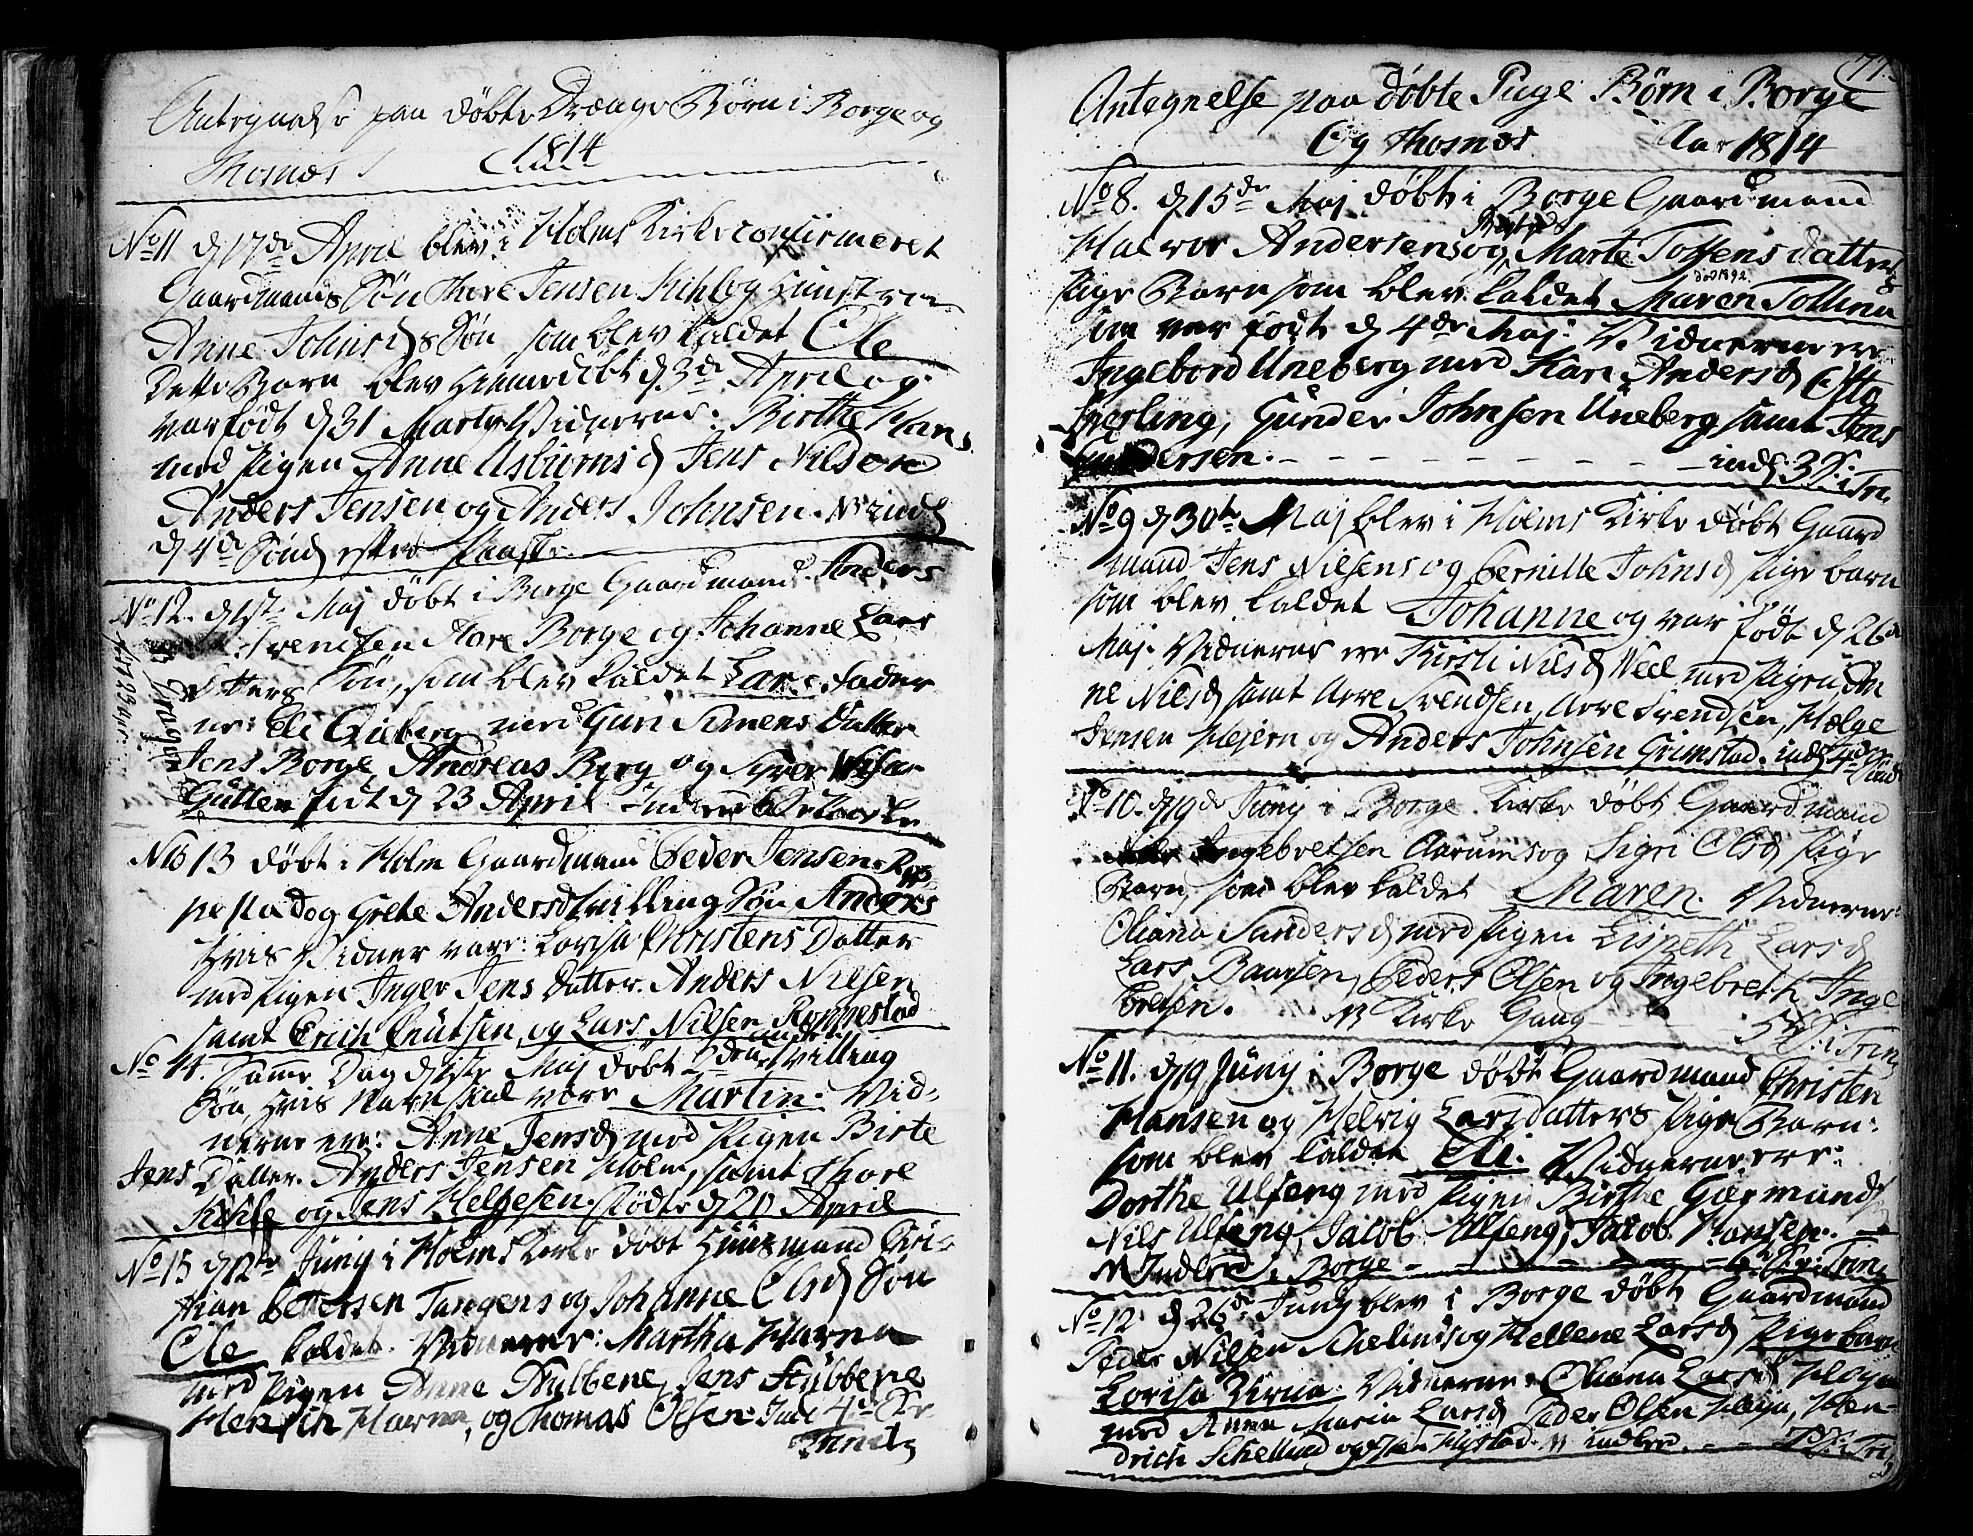 Antegnelse paa døbte Drænge Børn i Borge og
Thosnæs 1814
No 11 d 17de April blev i Holms Kirke confirmeret
Gaardmands Søn Thore Jensen Kihle og Hustroe
Anne Johns d Søn som blev kaldet Ole
Dette Barn blev hiemedøbt d 3de April og
var født d 31 Marty Vidnerne: Birthe
med Pigen Anne Asbiørns d Jens Nilsen
Anders Jensen og Anders Johnsen. NB indl
d 4de Sønd efter Paaske
No 12. d 1ste Maj døbt i Borge Gaardmand Anders
Svendsen Aare Borge og Johanne Lars
Datters Søn, som blev kaldet Lars. Fader
ne: Eli Qviberg med Guri Simens Datter
Jens Borge, Andreas Berg og Syver
Gutten født d 23 April
No 13 døbt i Holm Gaardmand Peder Jensen Rop
pestad og Grete Anders d Tvilling Søn Anders
Hvis Vidner vare: Lovisa Christens Datter
med Pigen Inger Jens Datter. Anders Nilsen
samt Erich Cnutsen, og Lars Nilsen Roppestad
No 14. Samme Dag d 1ste Maj døbt den anden Tvilling
Søn, hvis Navn skal være Martin. Vid-
nerne ere: Anne Jens d med Pigen Birte
Jens Datter. Anders Jensen Holm, samt Thore
Kihle og Jens Helgesen. fødte d 20 April
No 15 d 12te Juny i Holms Kirke døbt Huusmand Chri-
stian Pettersen Tangens og Johanne Ols d Søn
Ole kaldet. Vidnerne: Martha Havna
med Pigen Anne Stubbene, Jens Stubbene
Henrich Havna, og Thomas Olsen. Indl 4de S. e
Trinit
77.
Antegnelse paa døbte Pige Børn i Borge
Og Thosnæs Aar 1814
No 8. d 15de Maj døbt i Borge Gaardmand
Halvor Andersens og Marte Tollfens datters
død 1892
Pige Barn som blev kaldet Maren Tollina
som var født d 4de Maj. Vidnerne ere
Ingebord Uneberg med Kari Anders d Otto
Sperling, Gunder Johnsen Uneberg samt Jens
Andersen. indl. 3 S. i Trin.
No 9 d 30te Maj blev i Holms Kirke døbt Gaard
mand Jens Nielsens og Pernille Johns d Pige barn
som blev kaldet Johanne og var født d 26de
Maj. Vidnerne ere Kirsti Nils d Weel med Pigen An
ne Nils d samt Arre Svendsen, Arre Svendsen, Helge
Jensen Hejern og Anders Johnsen Grimstad. indl 4de Sønd
No 10. d 19de Juny i Borge Kirke døbt Gaardmand
Ingebretsen Aarums og Sigri Ols d Pige
Barn, som blev kaldet Maren. Vidnerne:
Oliana Sanders d med Pigen Lispeth Lars d
Lars Baansen, Peder Olsen og Ingebreth Inge
bretsen. NB Kirke Gang 5 S. i Trin
No 11. d 19 Juny i Borge døbt Gaardmand Christen
Hansen og Helvig Lars datters Pige Barn.
som blev kaldet Eli. Vidnerne ere:
Dorthe Ulfeng med Pigen Birthe Giermunds
Nils Ulfeng, Jacob Ulfeng, Jacob Hansen.
NB Indled i Borge 6 S. e Trin
No 12 d 26de Juny blev i Borge døbt Gaardmand
Peder Nilsen Schelinds og Hellene Lars d Pige barn
Lovisa Virna. Vidnerne: Oliana Lars d Haya
med Anna Maria Lars d Peder Olsen Haya, Hen-
drich Schellind og Hystad. NB indled. Trin